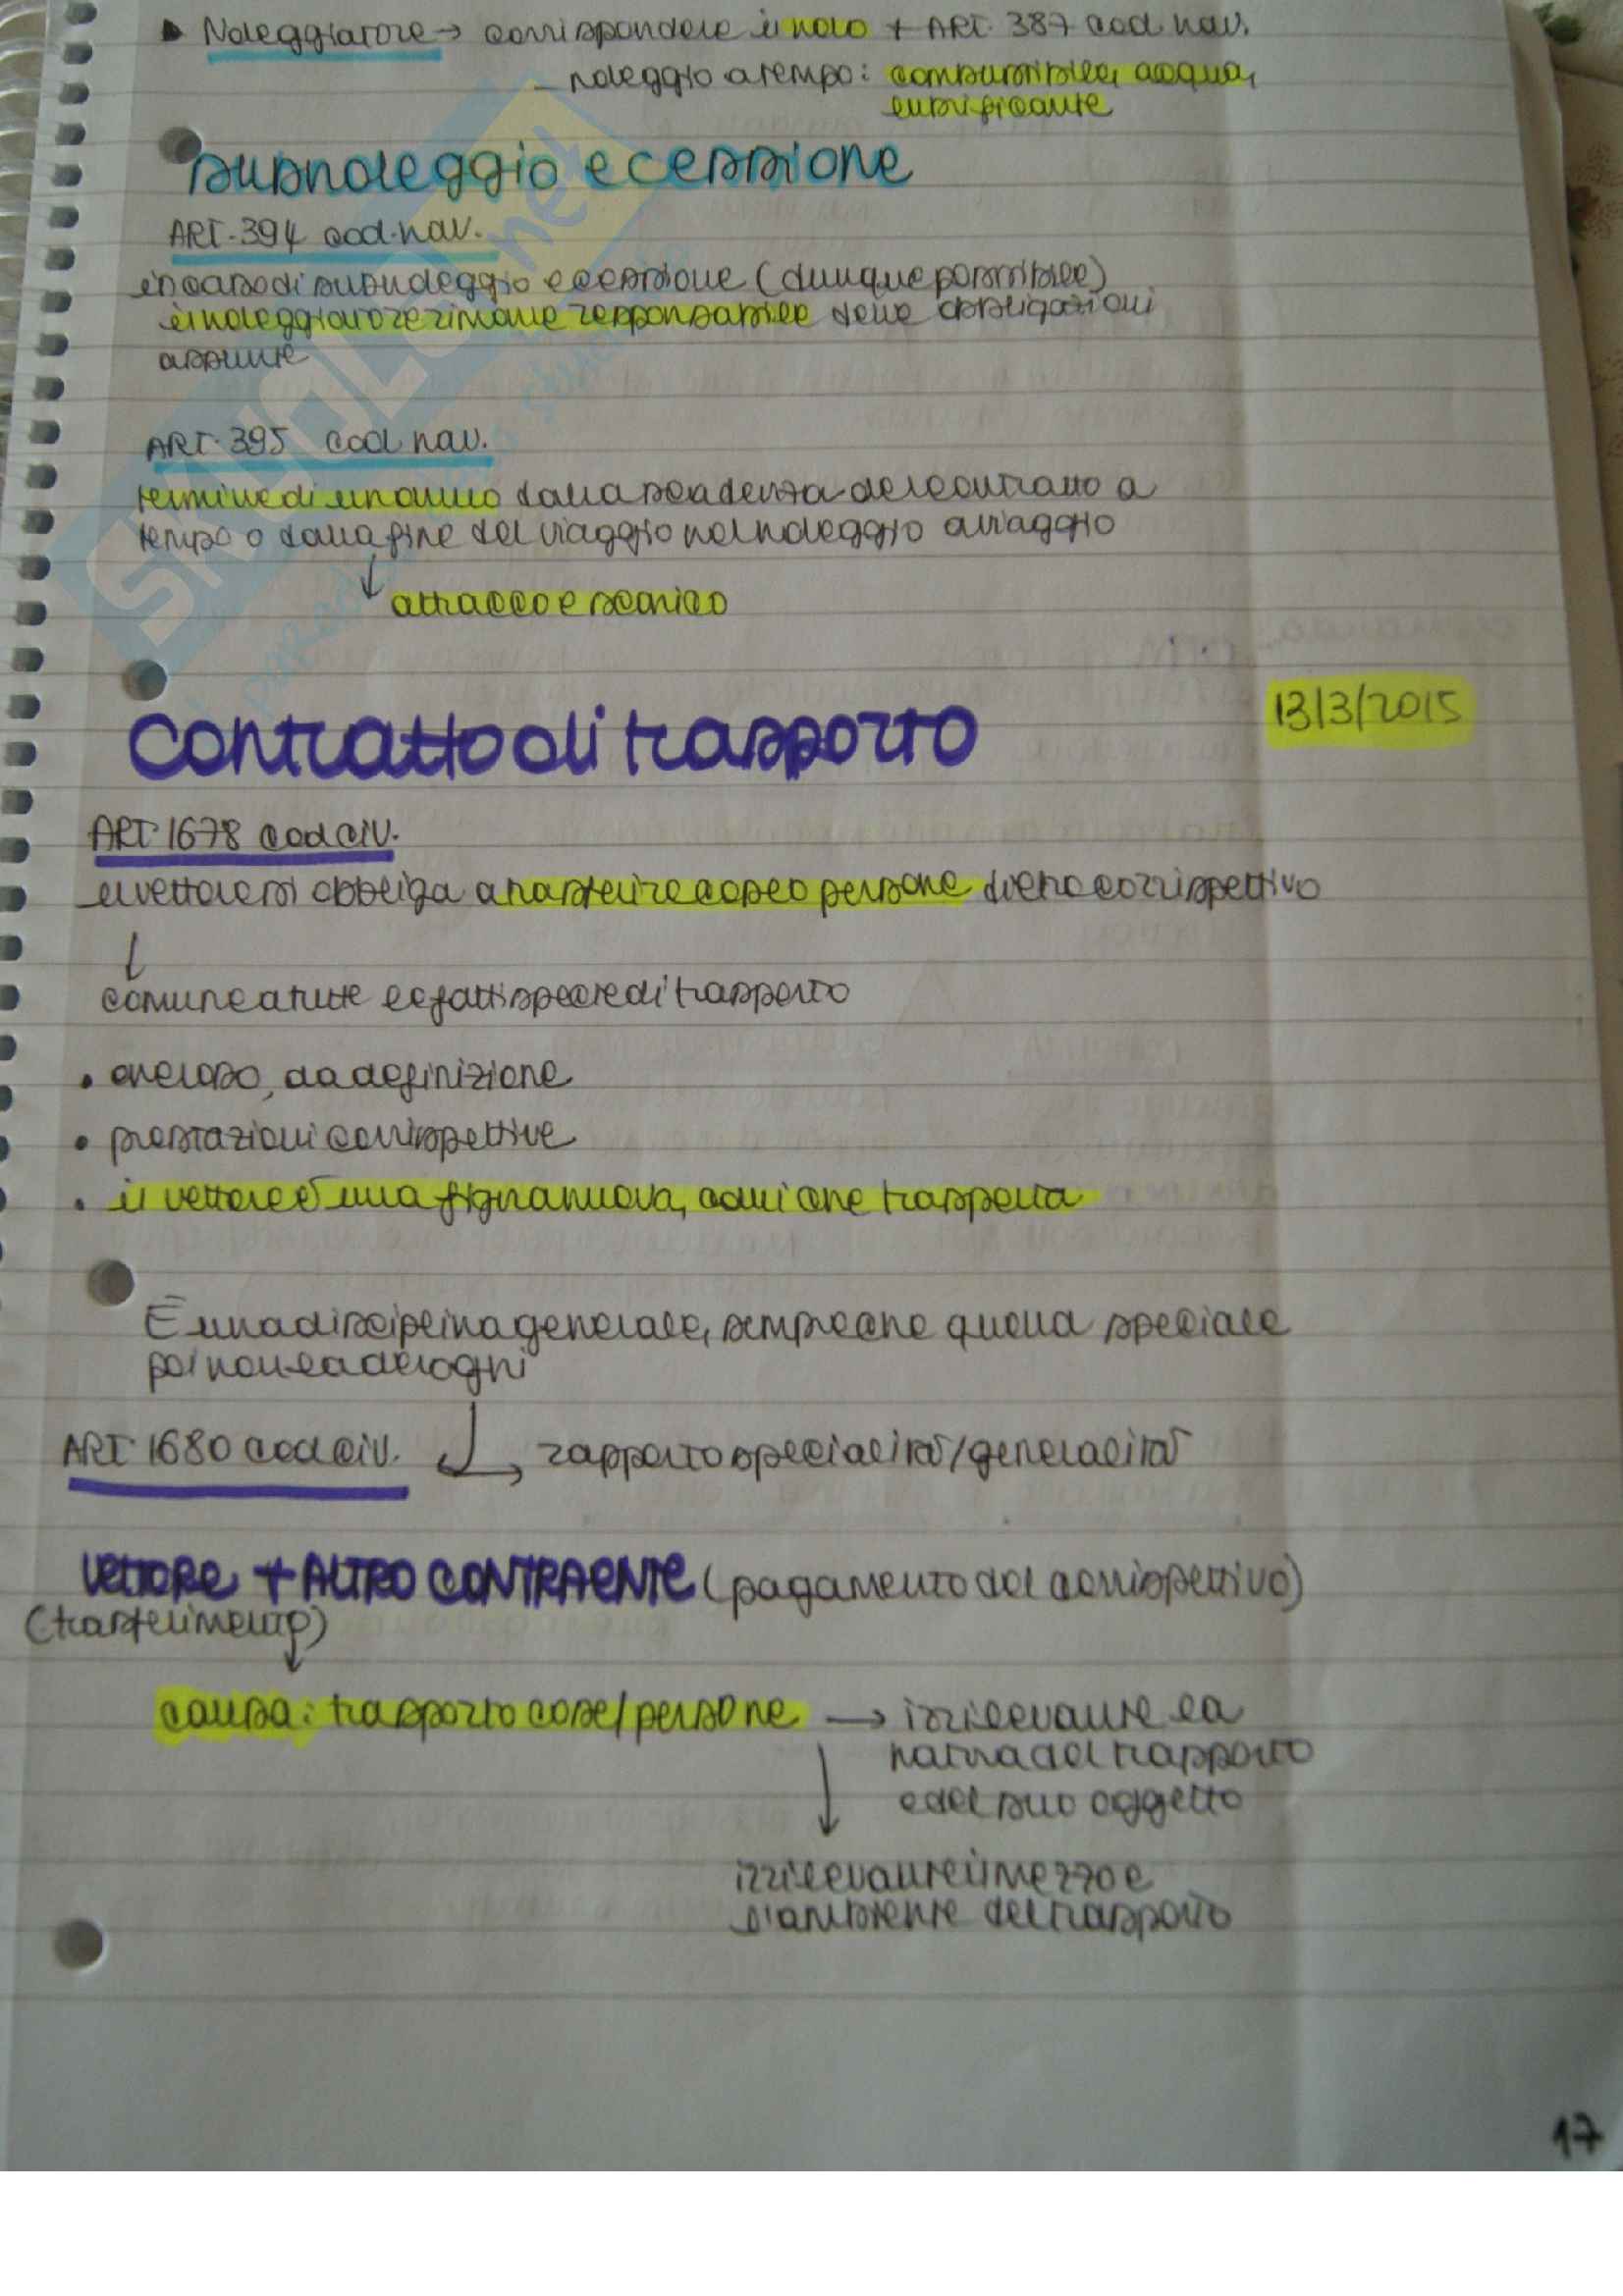 ▸ Noleggiatore → corrispondere il nolo + ART. 387 cod. nav.
– noleggio a tempo: combustibile, acqua,
lubrificante
subnoleggio e cessione
ART. 394 cod. nav.
in caso di subnoleggio e cessione (dunque possibile)
il noleggiatore rimane responsabile delle obbligazioni
assunte
ART. 395 cod. nav.
termine di un anno dalla scadenza del contratto a
tempo o dalla fine del viaggio nel noleggio a viaggio
↓
attracco e scarico
SKUOLA.net
Contratto di trasporto
13/3/2015
ART. 1678 cod civ.
il vettore si obbliga a trasferire cose o persone dietro corrispettivo
↓
comune a tutte le fattispecie di trasporto
• oneroso, da definizione
• prestazioni corrispettive
• il vettore è una figura nuova, colui che trasporta
È una disciplina generale, sempre che quella speciale
poi non la deroghi
ART. 1680 cod civ. ↲→ rapporto specialità/generalità
VETTORE + ALTRO CONTRAENTE (pagamento del corrispettivo)
(trasferimento)
↓
causa: trasporto cose/persone → irrilevante la
natura del trasporto
e del suo oggetto
↓
irrilevante il mezzo e
l'ambiente del trasporto
17